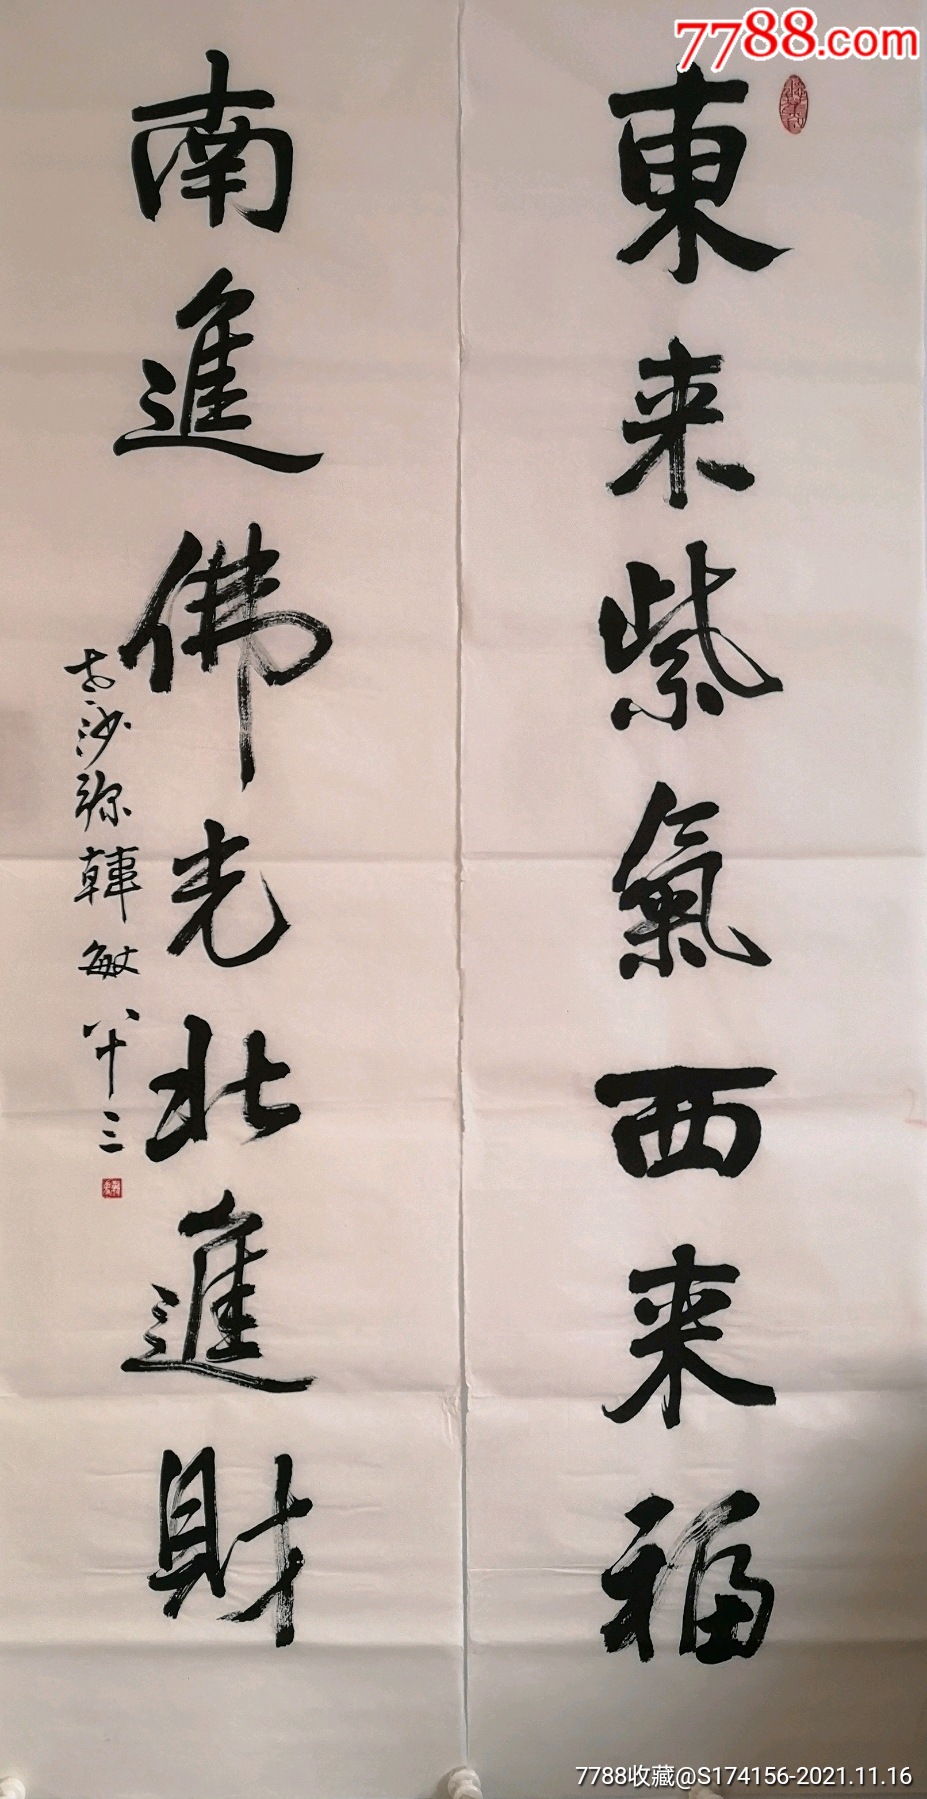 7788.com
東来紫氣西来福
南進佛光北進財
古沙弥韓敏八十三
7788收藏@S174156-2021.11.16